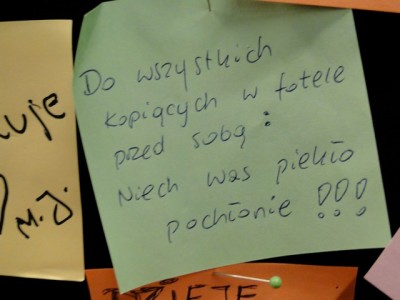 Do wszystkich
kopiących w fotele
przed sobą :
Niech was piekło
pochłonie !!!
uje
M.J.
DZIEJE